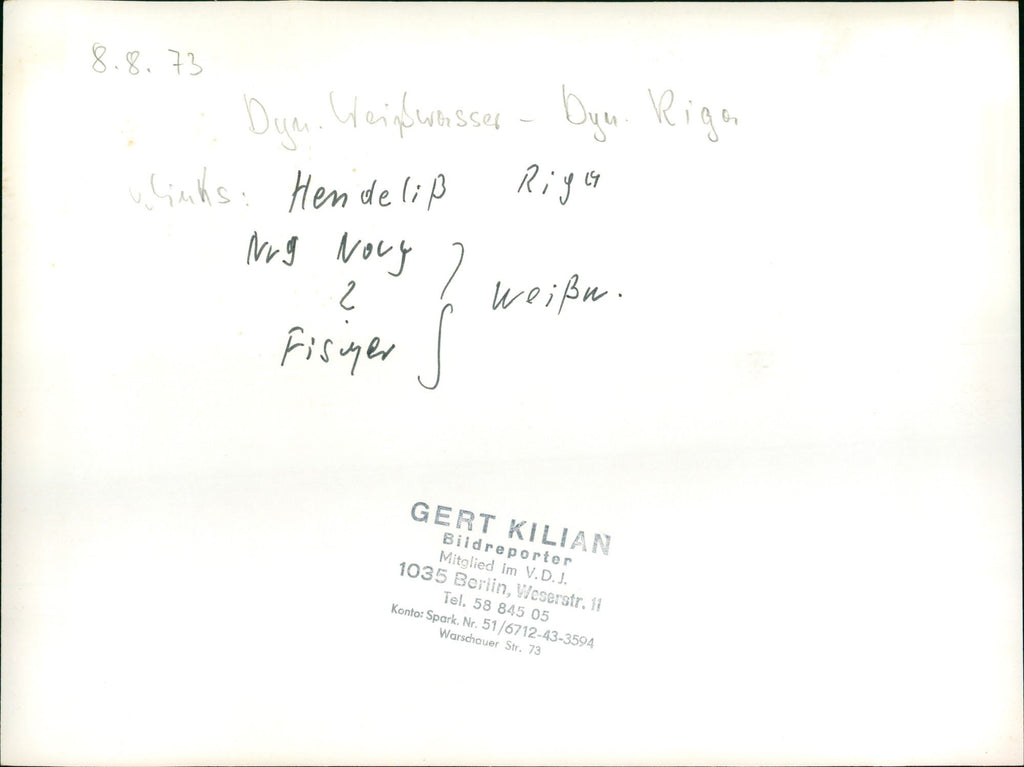 8.8.73
Dyn. Weißwasser - Dyn. Riga
v. links: Hendeliß Riga
Nr 9 Novy
2 } Weißw.
Fischer
GERT KILIAN
Bildreporter
Mitglied im V.D.J.
1035 Berlin, Weserstr. 11
Tel. 58 845 05
Konto: Spark. Nr. 51/6712-43-3594
Warschauer Str. 73